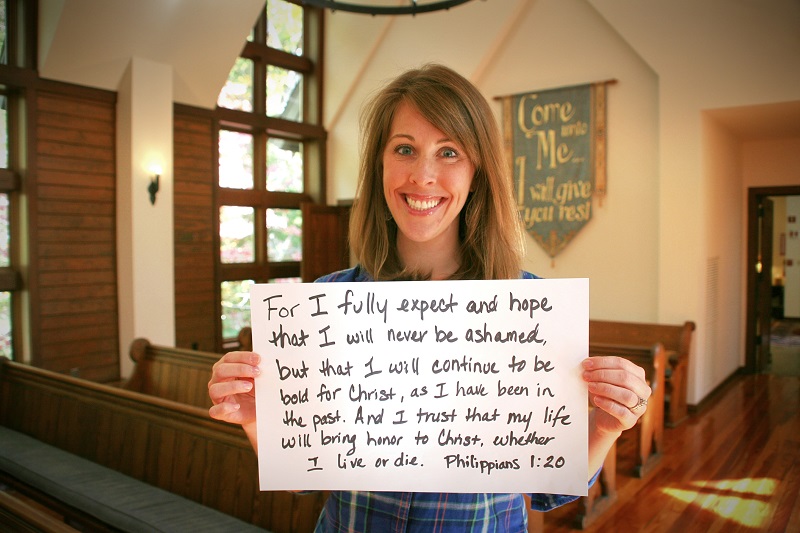 Come
unto
Me...
I will give
you rest
For I fully expect and hope
that I will never be ashamed,
but that I will continue to be
bold for Christ, as I have been in
the past. And I trust that my life
will bring honor to Christ, whether
I live or die. Philippians 1:20